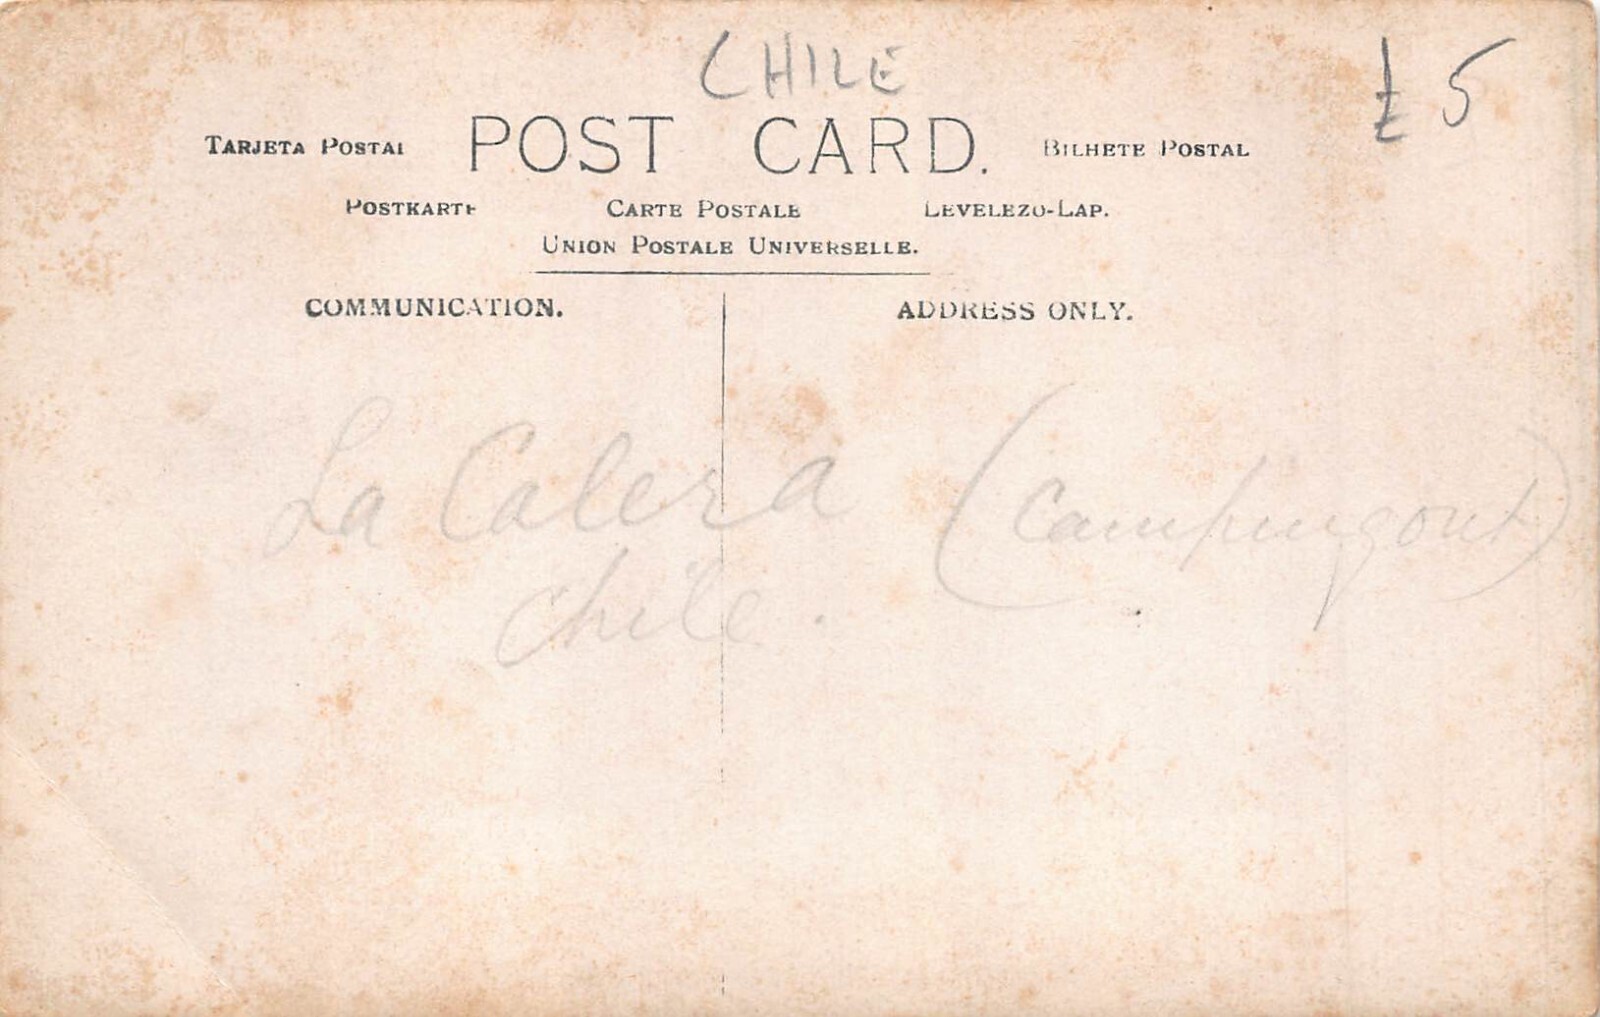 CHILE
£ 5
TARJETA POSTAL POST CARD. BILHETE POSTAL
POSTKARTE CARTE POSTALE LEVELEZO-LAP.
UNION POSTALE UNIVERSELLE.
COMMUNICATION. ADDRESS ONLY.
La Calera
Chile.